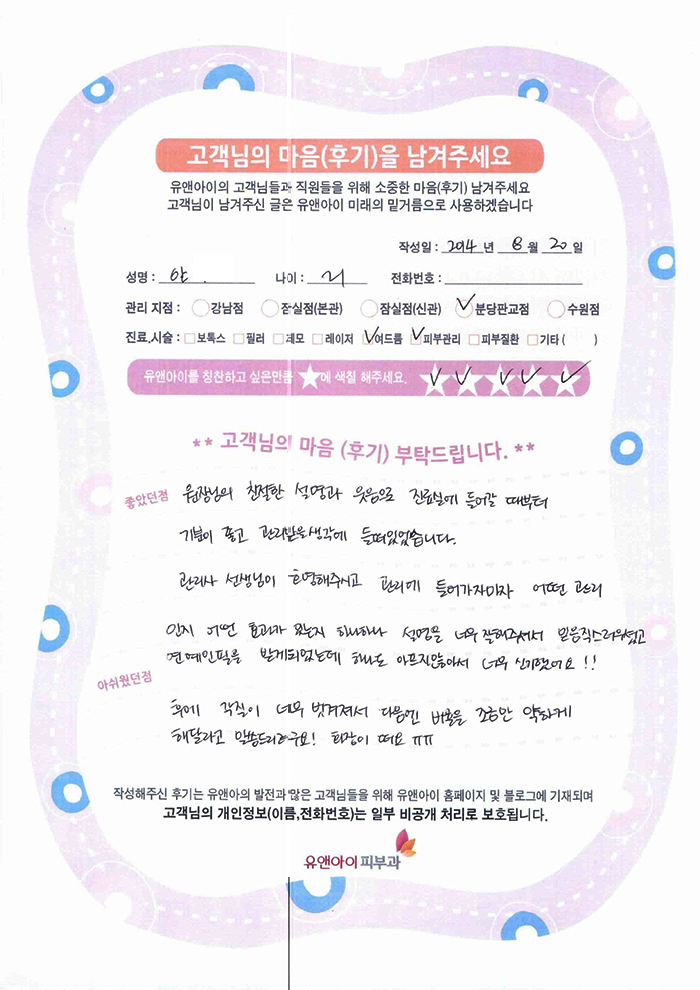 고객님의 마음(후기)을 남겨주세요
유앤아이의 고객님들과 직원들을 위해 소중한 마음(후기) 남겨주세요
고객님이 남겨주신 글은 유앤아이 미래의 밑거름으로 사용하겠습니다
작성일 : 2014 년 8 월 20 일
성명 : 나이 : 전화번호 :
관리 지점 : 강남점 잠실점(본관) 잠실점(신관) 분당판교점 수원점
진료,시술 : 보톡스 필러 제모 레이저 여드름 피부관리 피부질환 기타 ( )
유앤아이를 칭찬하고 싶은만큼 ★에 색칠 해주세요.
** 고객님의 마음 (후기) 부탁드립니다. **
좋았던점 원장님의 친절한 설명과 웃음으로 진료실에 들어갈 때부터
기분이 좋고 관리받을생각에 들떠있었습니다.
관리사 선생님이 환영해주시고 관리에 들어가자마자 어떤 관리
인지 어떤 효과가 있는지 하나하나 설명을 너무 잘해주셔서 믿음직스러웠고
연예인필을 받게되었는데 하나도 아프지않아서 너무 신기했어요 !!
아쉬웠던점
후에 각질이 너무 벗겨져서 다음엔 버블을 조금만 약하게
해달라고 말씀드리려구요! 화장이 떠요 ㅠㅠ
작성해주신 후기는 유앤아의 발전과 많은 고객님들을 위해 유앤아이 홈페이지 및 블로그에 기재되며
고객님의 개인정보(이름,전화번호)는 일부 비공개 처리로 보호됩니다.
유앤아이피부과